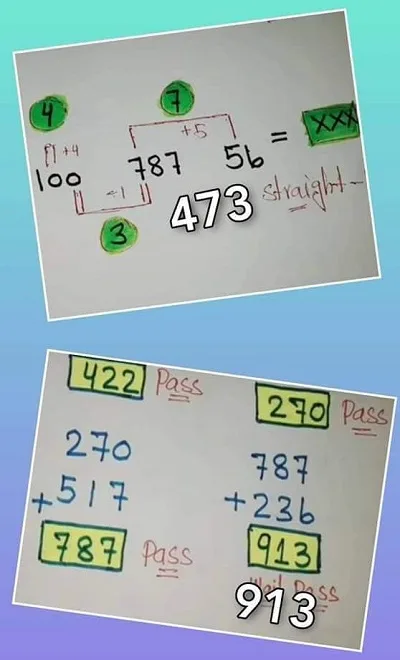 4
7
+5
+4
100 787 56 = XXX
-1
3
473 straight
422 Pass
270 Pass
270
+517
787 Pass
787
+236
913
Wait Pass
913